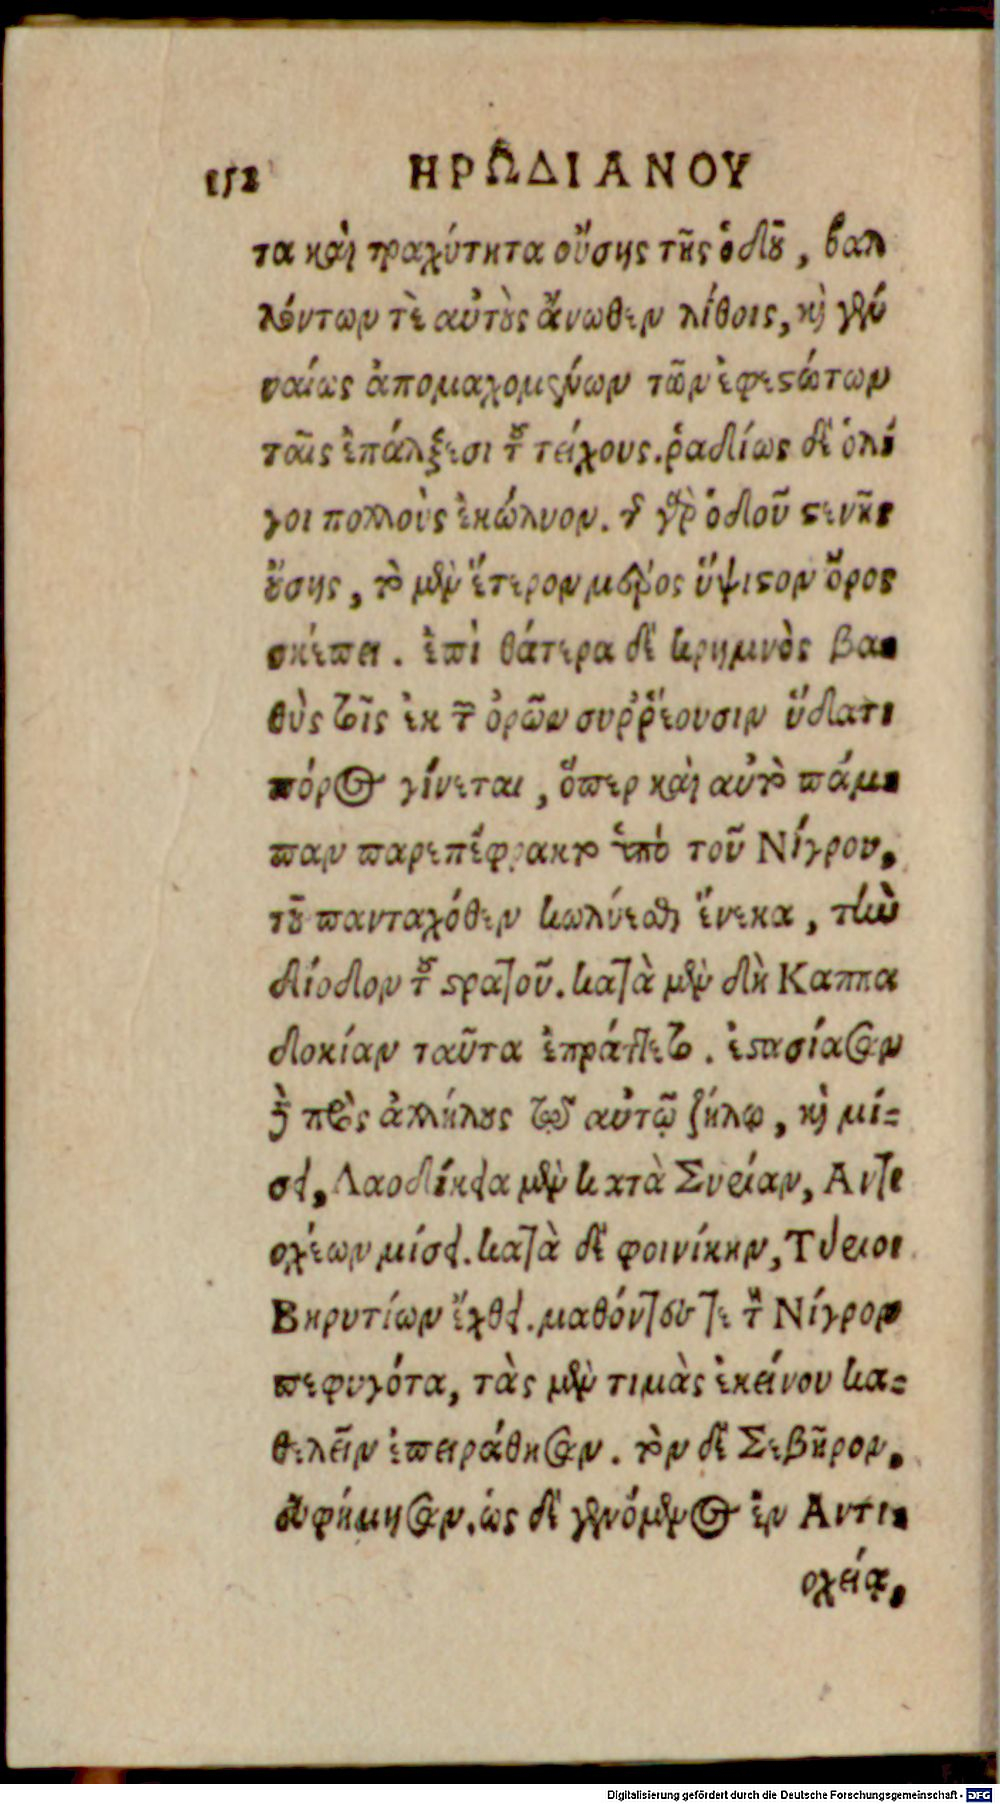 152 ΗΡΩΔΙΑΝΟΥ
τα καὶ τραχύτητα οὔσης τῆς ὁδοῦ, βαλ
λόντων τὲ αὐτοὺς ἄνωθεν λίθοις, καὶ γεν
ναίως ἀπομαχομένων τῶν ἐφεστώτων
ταῖς ἐπάλξεσι τοῦ τείχους. ῥαδίως δὲ ὀλί
γοι πολλοὺς ἐκώλυον. τῆς γὰρ ὁδοῦ στενῆς
οὔσης, τὸ μὲν ἕτερον μέρος ὕψιστον ὄρος
σκέπει. ἐπὶ θάτερα δὲ κρημνὸς βα-
θὺς τοῖς ἐκ τῶν ὀρῶν συῤῥέουσιν ὕδατι
πόρος γίνεται, ὅπερ καὶ αὐτὸ πάμ-
παν παρεπέφρακτο ὑπὸ τοῦ Νίγρου,
τοῦ πανταχόθεν κωλύεσθαι ἕνεκα, τὴν
δίοδον τοῦ στρατοῦ. κατὰ μὲν δὴ Καππα
δοκίαν ταῦτα ἐπράττετο. ἐστασίασαν
δὲ πρὸς ἀλλήλους τῷ αὐτῷ ζήλῳ, καὶ μί-
σει, Λαοδίκεια μὲν κατὰ Συρίαν, Αντι
οχέων μίσει. κατὰ δὲ φοινίκην, Τύριοι
Βηρυτίων ἔχθει. μαθόντες τε τὸν Νίγρον
πεφυγότα, τὰς μὲν τιμὰς ἐκείνου κα-
θελεῖν ἐπειράθησαν. τὸν δὲ Σεβῆρον,
εὐφήμησαν. ὡς δὲ γενόμενος ἐν Αντι-
οχείᾳ,
Digitalisierung gefördert durch die Deutsche Forschungsgemeinschaft - DFG